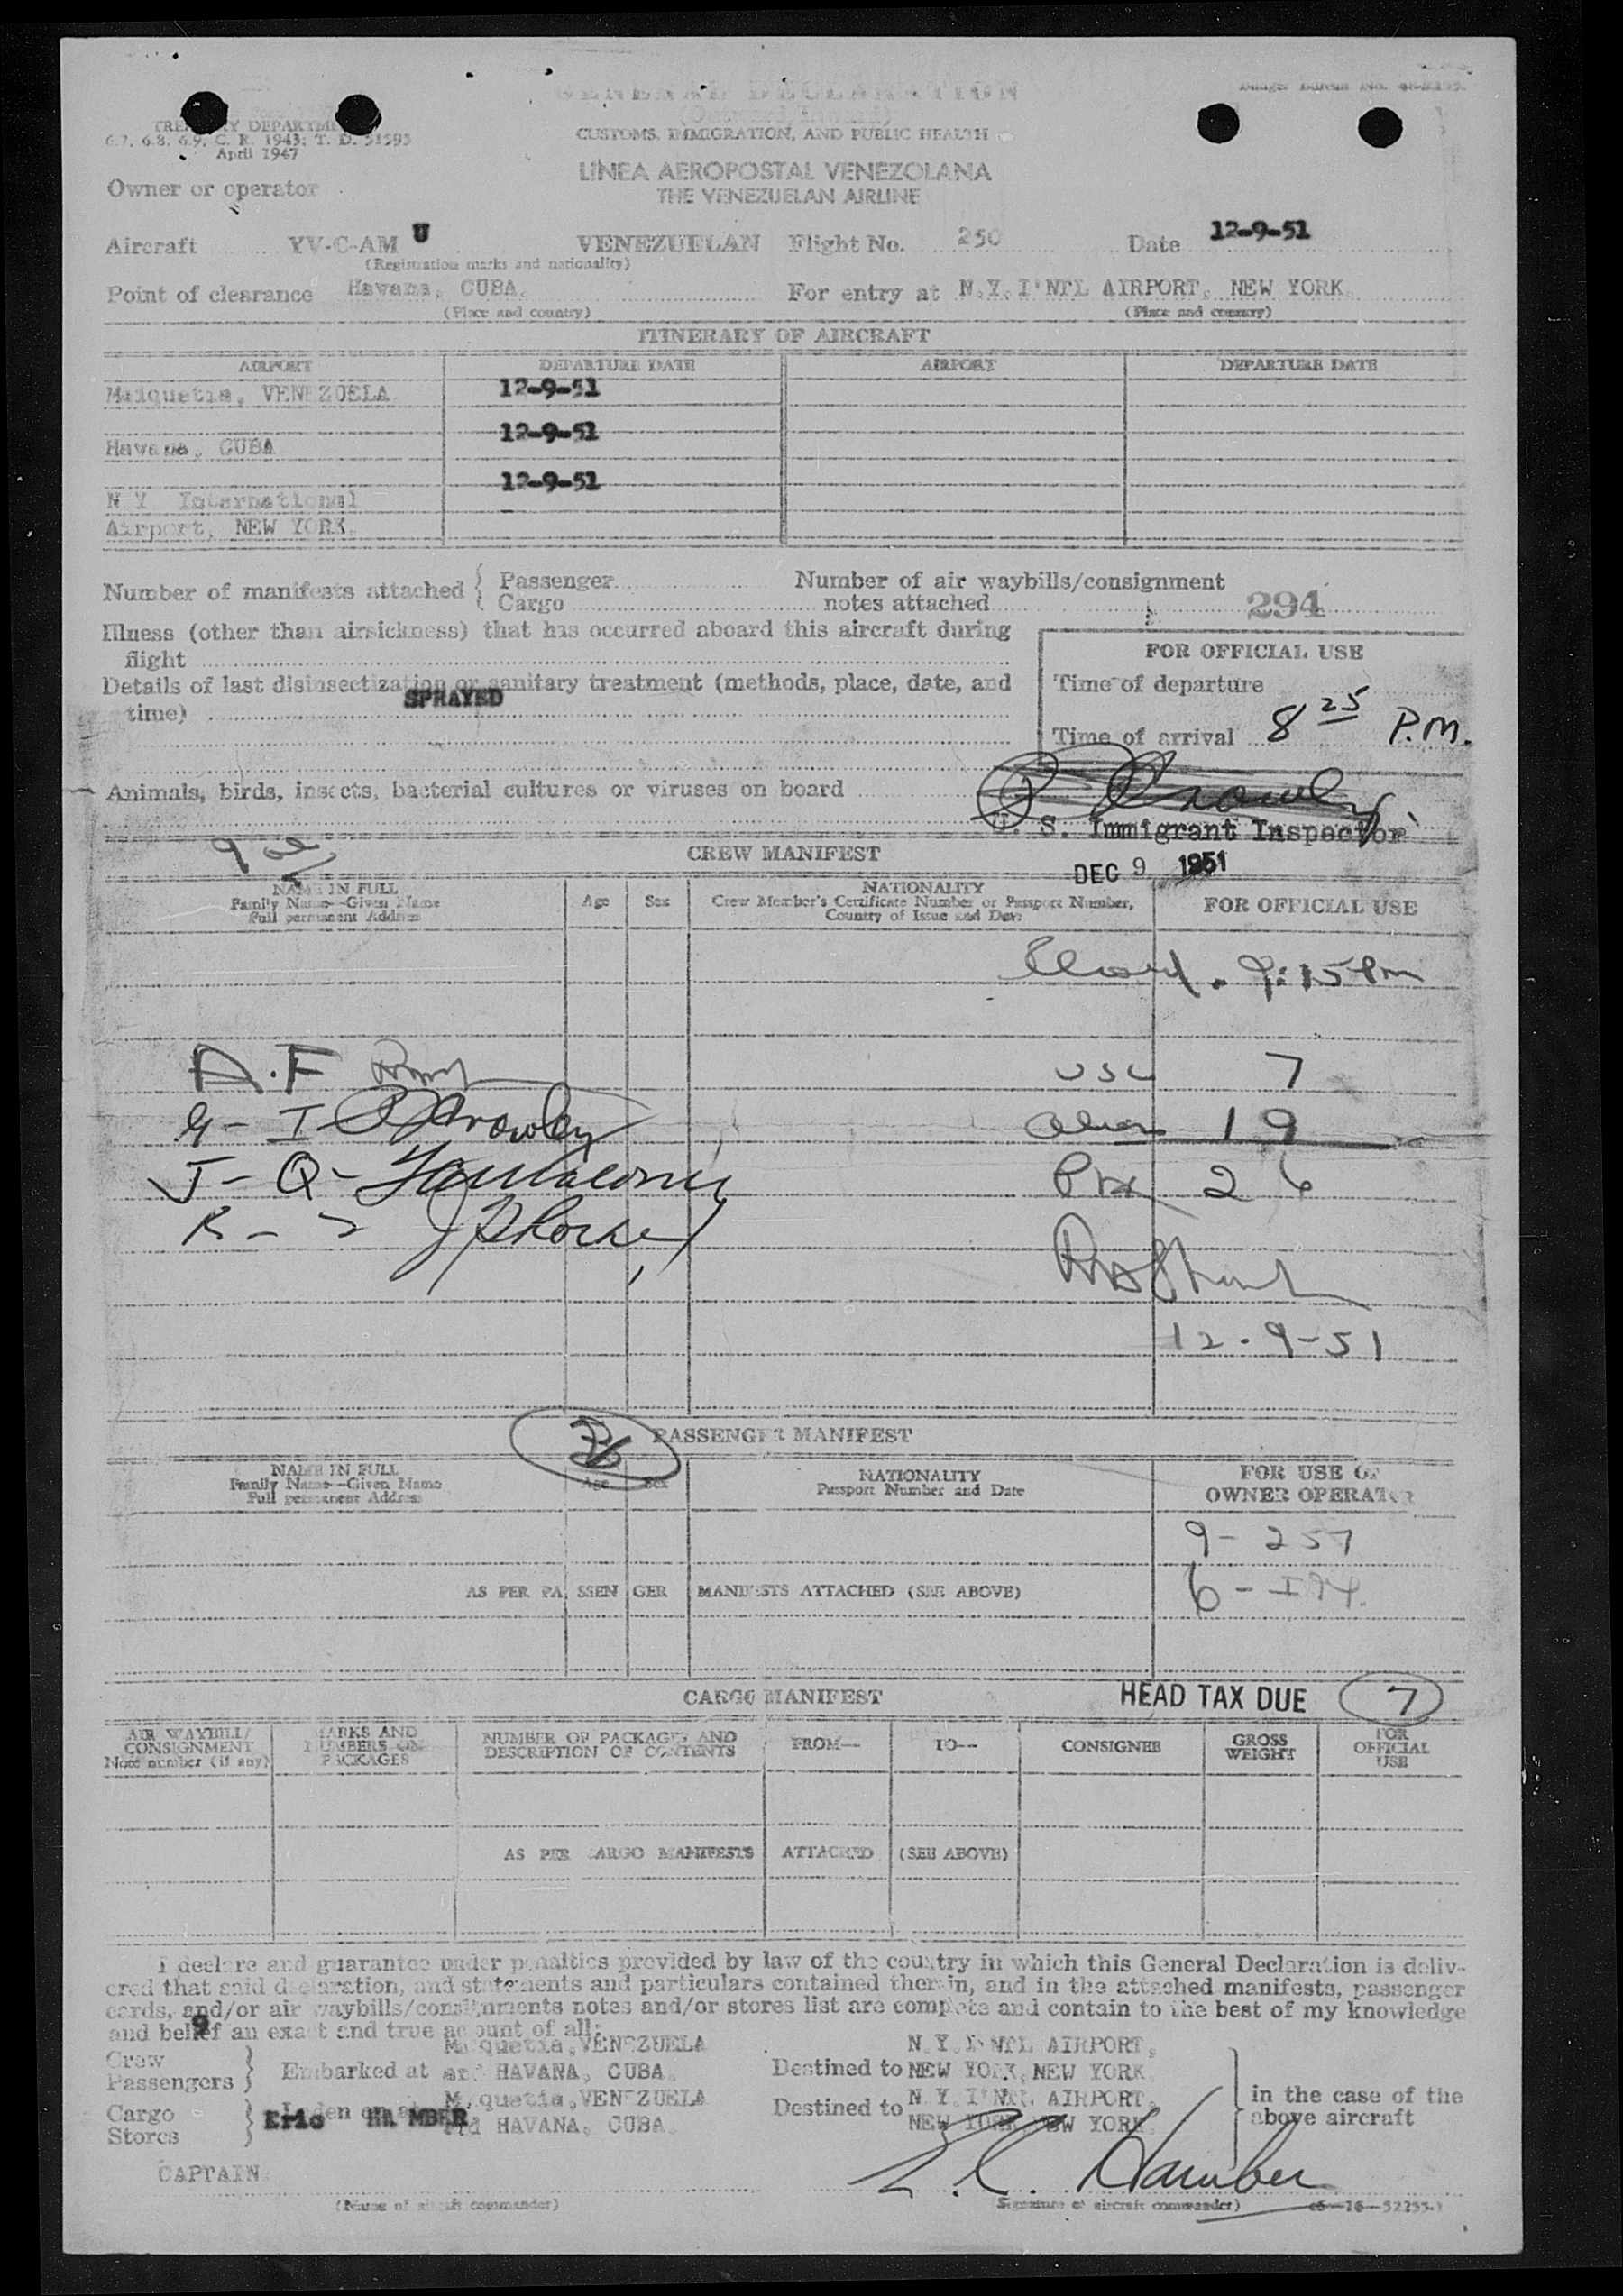 GENERAL DECLARATION
(Outward/Inward)
TREASURY DEPARTMENT
6.7, 6.8, 6.9, C. R. 1943; T. D. 51593
April 1947
CUSTOMS, IMMIGRATION, AND PUBLIC HEALTH
LINEA AEROPOSTAL VENEZOLANA
THE VENEZUELAN AIRLINE
Owner or operator
Aircraft YV-C-AM U VENEZUELAN Flight No. 250 Date 12-9-51
(Registration marks and nationality)
Point of clearance Havana, CUBA. For entry at N.Y. I'NTL AIRPORT, NEW YORK
(Place and country) (Place and country)
ITINERARY OF AIRCRAFT
AIRPORT DEPARTURE DATE AIRPORT DEPARTURE DATE
Maiquetia, VENEZUELA 12-9-51
Havana, CUBA 12-9-51
N Y International 12-9-51
Airport, NEW YORK.
Number of manifests attached { Passenger Number of air waybills/consignment
Cargo notes attached 294
Illness (other than airsickness) that has occurred aboard this aircraft during
flight
FOR OFFICIAL USE
Details of last disinsectization or sanitary treatment (methods, place, date, and
time) SPRAYED
Time of departure
Time of arrival 8 25 P.M.
Animals, birds, insects, bacterial cultures or viruses on board
U. S. Immigrant Inspector
DEC 9 1951
CREW MANIFEST
NAME IN FULL
Family Name—Given Name
Full permanent Address
Age Sex
NATIONALITY
Crew Member's Certificate Number or Passport Number,
Country of Issue and Date
FOR OFFICIAL USE
9:15 Pm
A.F
USC 7
G - I Crowley
Alien 19
J - Q -
26
R -
12-9-51
26
PASSENGER MANIFEST
NAME IN FULL
Family Name—Given Name
Full permanent Address
Age Sex
NATIONALITY
Passport Number and Date
FOR USE OF
OWNER OPERATOR
9 - 257
AS PER PASSENGER MANIFESTS ATTACHED (SEE ABOVE)
CARGO MANIFEST
HEAD TAX DUE 7
AIR WAYBILL/
CONSIGNMENT
Note number (if any)
MARKS AND
NUMBERS ON
PACKAGES
NUMBER OF PACKAGES AND
DESCRIPTION OF CONTENTS
FROM— TO— CONSIGNEE
GROSS
WEIGHT
FOR
OFFICIAL
USE
AS PER CARGO MANIFESTS ATTACHED (SEE ABOVE)
I declare and guarantee under penalties provided by law of the country in which this General Declaration is deliv-
ered that said declaration, and statements and particulars contained therein, and in the attached manifests, passenger
cards, and/or air waybills/consignments notes and/or stores list are complete and contain to the best of my knowledge
and belief an exact and true account of all:
9
Crew
Passengers
Embarked at Maiquetia, VENEZUELA
and HAVANA, CUBA.
Destined to N.Y. I'NTL AIRPORT,
NEW YORK, NEW YORK
Cargo
Stores
Laden on at Maiquetia, VENEZUELA
and HAVANA, CUBA.
Destined to N.Y. I'NTL AIRPORT,
NEW YORK NEW YORK
in the case of the
above aircraft
Eric HAMBER
CAPTAIN
E. C. Hamber
(Name of aircraft commander)
(Signature of aircraft commander)